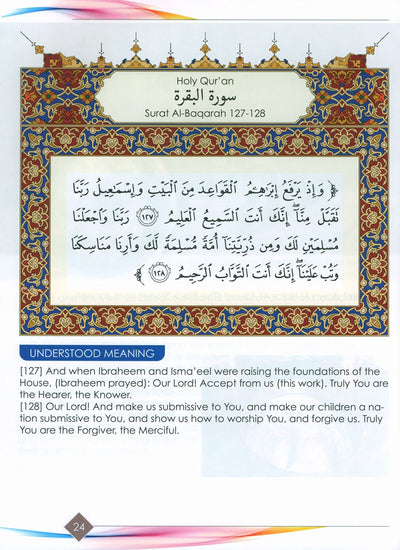 Holy Qur'an
سورة البقرة
Surat Al-Baqarah 127-128
﴿ وَإِذْ يَرْفَعُ إِبْرَٰهِـۧمُ ٱلْقَوَاعِدَ مِنَ ٱلْبَيْتِ وَإِسْمَـٰعِيلُ رَبَّنَا
تَقَبَّلْ مِنَّآ ۖ إِنَّكَ أَنتَ ٱلسَّمِيعُ ٱلْعَلِيمُ ١٢٧ رَبَّنَا وَٱجْعَلْنَا
مُسْلِمَيْنِ لَكَ وَمِن ذُرِّيَّتِنَآ أُمَّةً مُّسْلِمَةً لَّكَ وَأَرِنَا مَنَاسِكَنَا
وَتُبْ عَلَيْنَآ ۖ إِنَّكَ أَنتَ ٱلتَّوَّابُ ٱلرَّحِيمُ ١٢٨ ﴾
UNDERSTOOD MEANING
[127] And when Ibraheem and Isma'eel were raising the foundations of the
House, (Ibraheem prayed): Our Lord! Accept from us (this work). Truly You are
the Hearer, the Knower.
[128] Our Lord! And make us submissive to You, and make our children a na-
tion submissive to You, and show us how to worship You, and forgive us. Truly
You are the Forgiver, the Merciful.
24